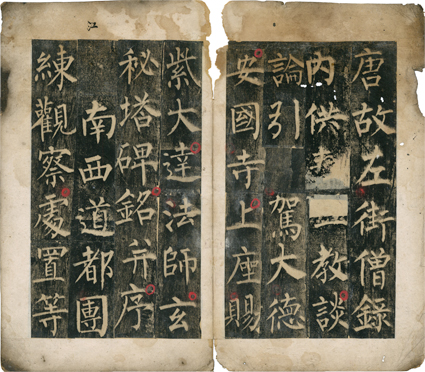 唐故左街僧錄
內供教談
論引駕大德
安國寺上座賜
紫大達法師玄
秘塔碑銘并序
江南西道都團
練觀察處置等